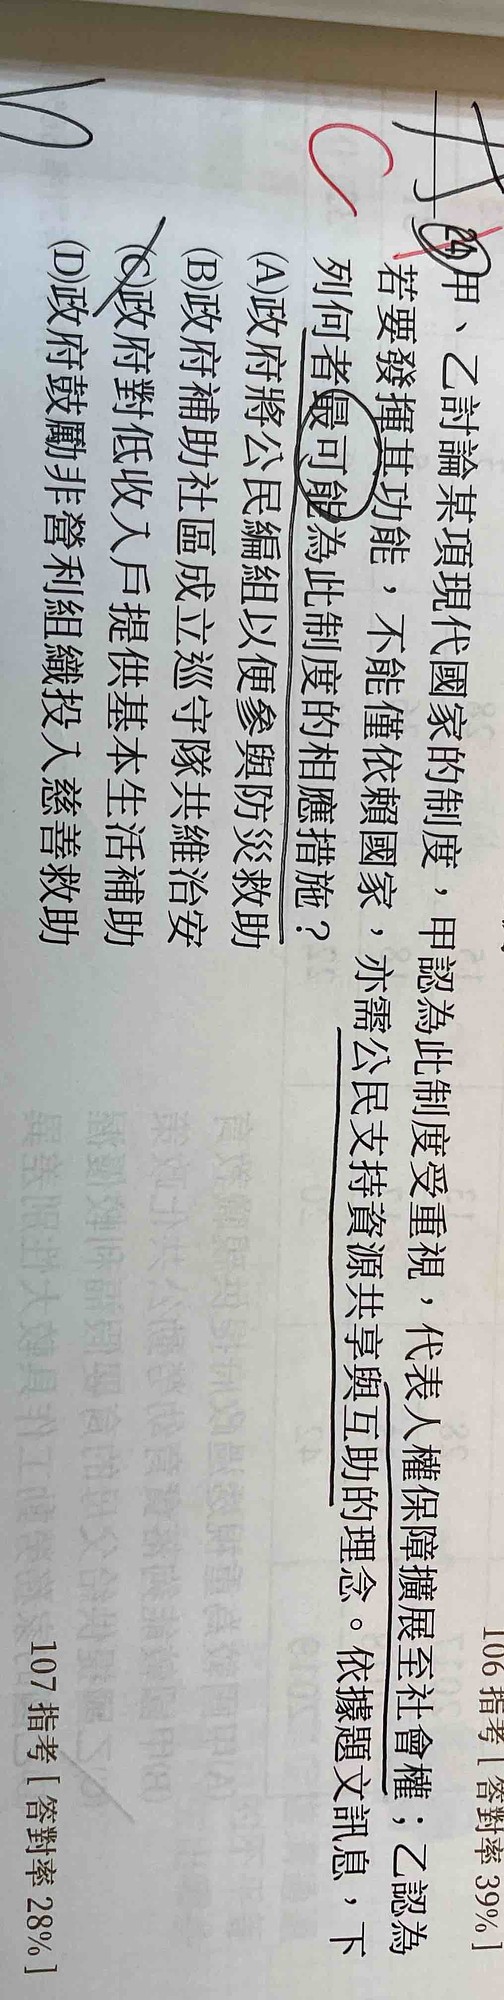 106 指考 [ 答對率 39% ]
24 甲、乙討論某項現代國家的制度，甲認為此制度受重視，代表人權保障擴展至社會權；乙認為
若要發揮其功能，不能僅依賴國家，亦需公民支持資源共享與互助的理念。依據題文訊息，下
列何者最可能為此制度的相應措施？
(A)政府將公民編組以便參與防災救助
(B)政府補助社區成立巡守隊共維治安
(C)政府對低收入戶提供基本生活補助
(D)政府鼓勵非營利組織投入慈善救助
107 指考 [ 答對率 28% ]
A
C